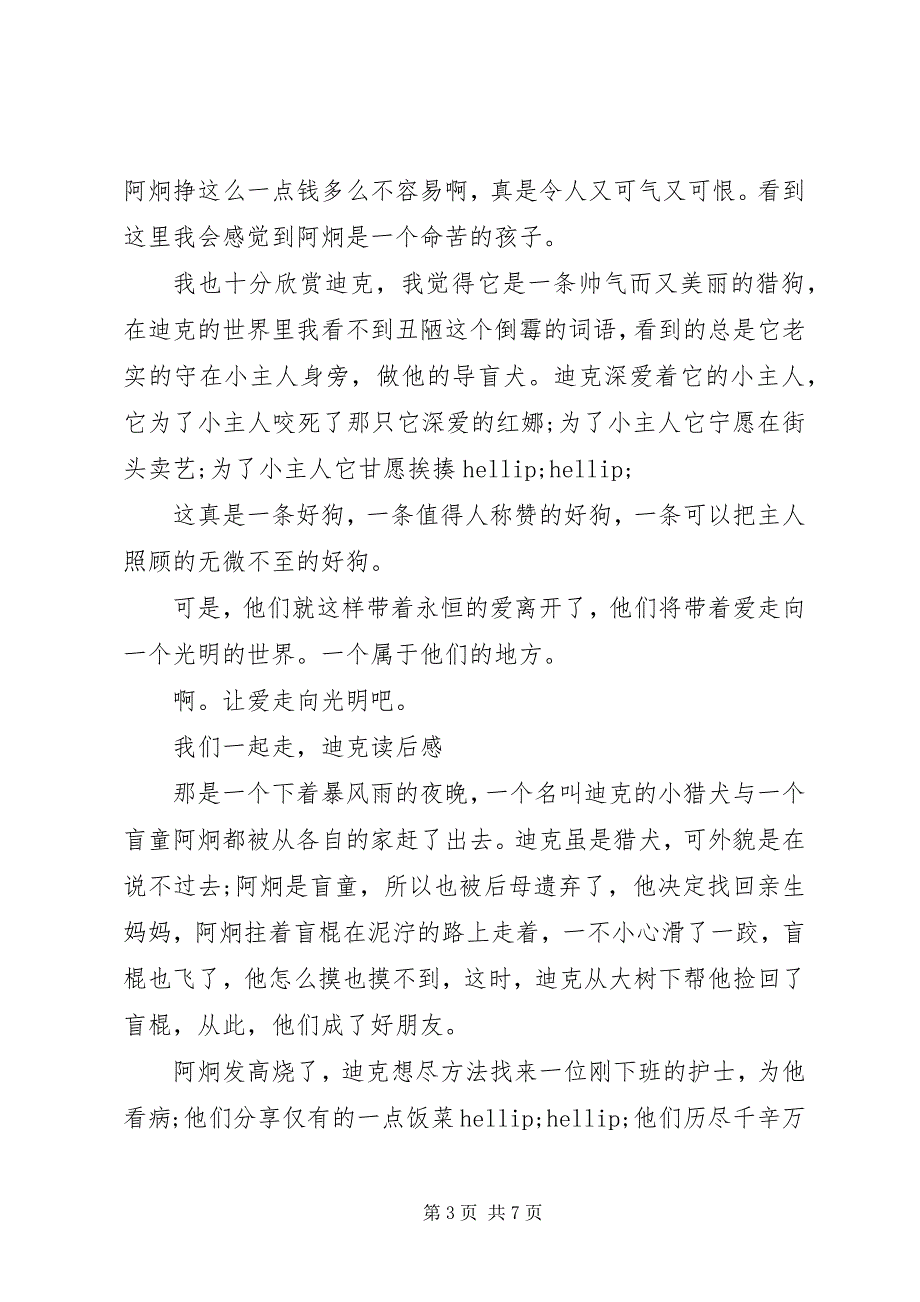 阿炯挣这么一点钱多么不容易啊，真是令人又可气又可恨。看到
这里我会感觉到阿炯是一个命苦的孩子。
我也十分欣赏迪克，我觉得它是一条帅气而又美丽的猎狗，
在迪克的世界里我看不到丑陋这个倒霉的词语，看到的总是它老
实的守在小主人身旁，做他的导盲犬。迪克深爱着它的小主人，
它为了小主人咬死了那只它深爱的红娜;为了小主人它宁愿在街
头卖艺;为了小主人它甘愿挨揍hellip;hellip;
这真是一条好狗，一条值得人称赞的好狗，一条可以把主人
照顾的无微不至的好狗。
可是，他们就这样带着永恒的爱离开了，他们将带着爱走向
一个光明的世界。一个属于他们的地方。
啊。让爱走向光明吧。
我们一起走，迪克读后感
那是一个下着暴风雨的夜晚，一个名叫迪克的小猎犬与一个
盲童阿炯都被从各自的家赶了出去。迪克虽是猎犬，可外貌是在
说不过去;阿炯是盲童，所以也被后母遗弃了，他决定找回亲生
妈妈，阿炯拄着盲棍在泥泞的路上走着，一不小心滑了一跤，盲
棍也飞了，他怎么摸也摸不到，这时，迪克从大树下帮他捡回了
盲棍，从此，他们成了好朋友。
阿炯发高烧了，迪克想尽方法找来一位刚下班的护士，为他
看病;他们分享仅有的一点饭菜hellip;hellip;他们历尽千辛万
第 3 页 共 7 页